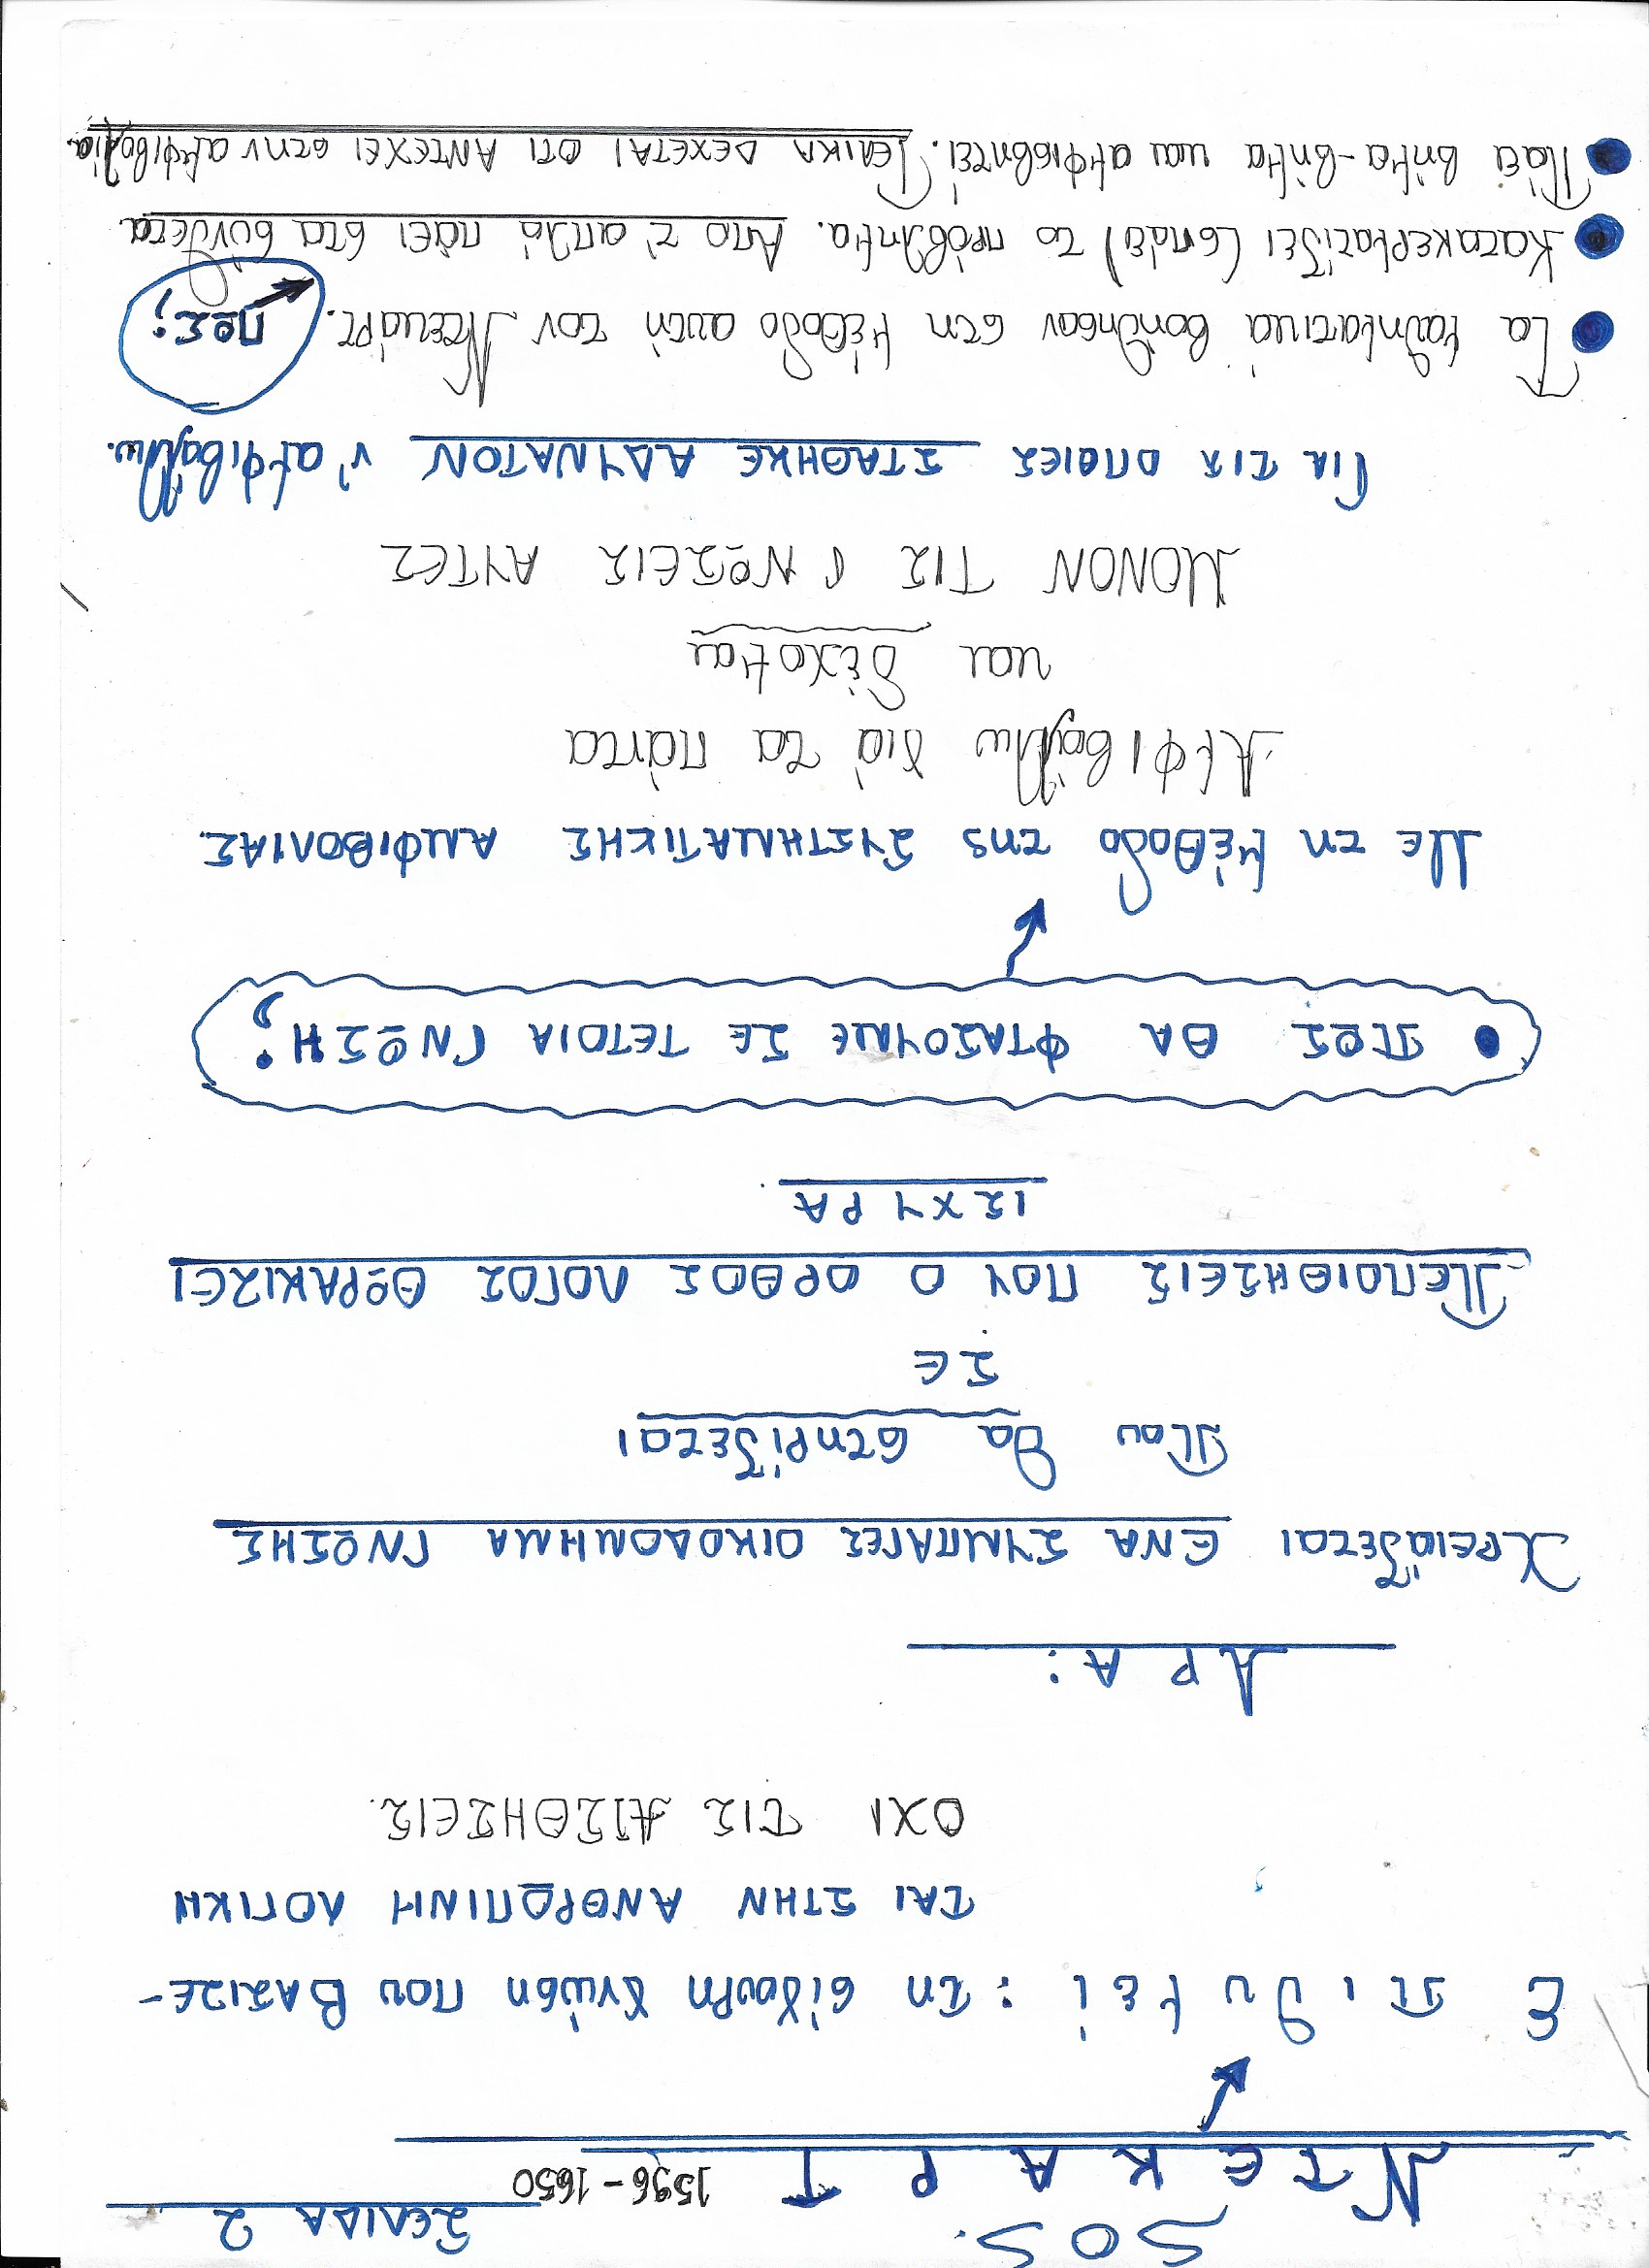 SOS. ΣΕΛΙΔΑ 2
ΝΤΕΚΑΡΤ 1596-1650
Επιθυμεί: τη σίγουρη γνώση που ΒΑΣΙΖΕ-
ΤΑΙ ΣΤΗΝ ΑΝΘΡΩΠΙΝΗ ΛΟΓΙΚΗ
ΟΧΙ ΤΙΣ ΑΙΣΘΗΣΕΙΣ.
ΑΡΑ:
Χρειάζεται ΕΝΑ ΣΥΜΠΑΓΕΣ ΟΙΚΟΔΟΜΗΜΑ ΓΝΩΣΗΣ
Που θα στηρίζεται
ΣΕ
ΠΕΠΟΙΘΗΣΕΙΣ ΠΟΥ Ο ΟΡΘΟΣ ΛΟΓΟΣ ΘΩΡΑΚΙΖΕΙ
ΙΣΧΥΡΑ.
• ΠΩΣ ΘΑ ΦΤΑΣΟΥΜΕ ΣΕ ΤΕΤΟΙΑ ΓΝΩΣΗ;
Με τη μέθοδο της ΣΥΣΤΗΜΑΤΙΚΗΣ ΑΜΦΙΒΟΛΙΑΣ.
Αμφιβάλλω γιά τα πάντα
και δέχομαι
ΜΟΝΟΝ ΤΙΣ ΓΝΩΣΕΙΣ ΑΥΤΕΣ
ΓΙΑ ΤΙΣ ΟΠΟΙΕΣ ΣΤΑΘΗΚΕ ΑΔΥΝΑΤΟΝ ν' αμφιβάλλω.
• Τα μαθηματικά βοήθησαν στη μέθοδο αυτή τον Ντεκάρτ. ΠΩΣ;
• Κατακερματίζει (σπάει) το πρόβλημα. Απο τ' απλά πάει στα σύνθετα
• Πάει βήμα-βήμα και αμφισβητεί. Τελικά ΔΕΧΕΤΑΙ ΟΤΙ ΑΝΤΕΧΕΙ στην αμφιβολία.